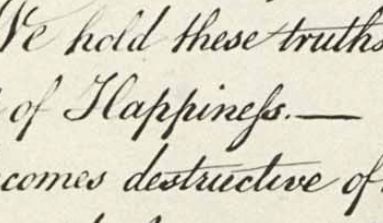 We hold these truths
of Happineſs.—
comes destructive of